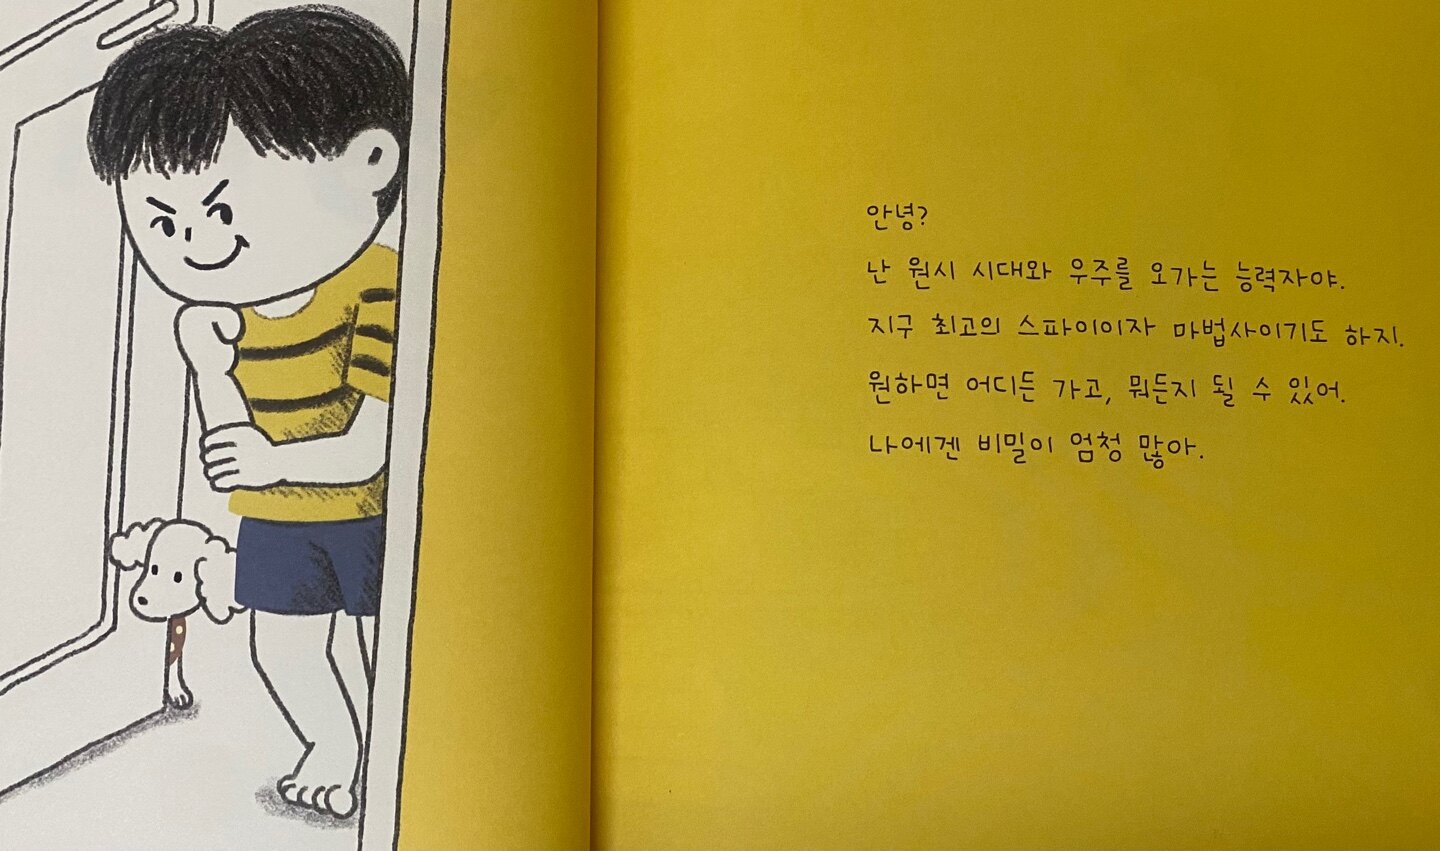 안녕?
난 원시 시대와 우주를 오가는 능력자야.
지구 최고의 스파이이자 마법사이기도 하지.
원하면 어디든 가고, 뭐든지 될 수 있어.
나에겐 비밀이 엄청 많아.